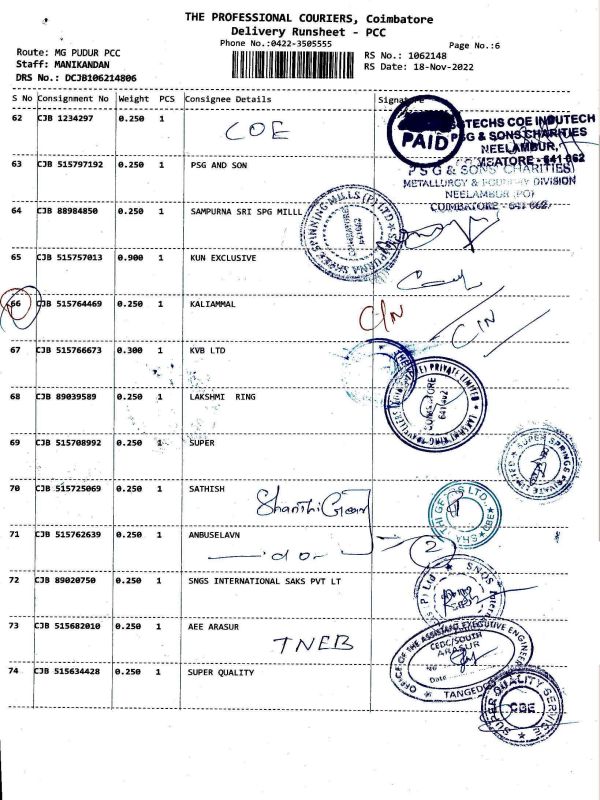 THE PROFESSIONAL COURIERS, Coimbatore
Delivery Runsheet - PCC
Phone No.:0422-3505555
Page No.:6
Route: MG PUDUR PCC
Staff: MANIKANDAN
DRS No.: DCJB106214806
RS No.: 1062148
RS Date: 18-Nov-2022
S No Consignment No Weight PCS Consignee Details Signature
62 CJB 1234297 0.250 1
COE
PAID
SGTECHS COE INDUTECH
PSG & SONS CHARITIES
NEELAMBUR,
COIMBATORE - 641 062
63 CJB 515797192 0.250 1 PSG AND SON
P S G & SONS' CHARITIES
METALLURGY & FOUNDRY DIVISION
NEELAMBUR (PO)
COIMBATORE - 641 062
64 CJB 88984850 0.250 1 SAMPURNA SRI SPG MILLL
SAMPURNA SHREE SPINNING MILLS (P) LTD
COIMBATORE
641 062
65 CJB 515757013 0.900 1 KUN EXCLUSIVE
66 CJB 515764469 0.250 1 KALIAMMAL
C/N
C/N
67 CJB 515766673 0.300 1 KVB LTD
68 CJB 89039589 0.250 1 LAKSHMI RING
LAKSHMI RING TRAVELLERS PRIVATE LIMITED
COIMBATORE
641 402
69 CJB 515708992 0.250 1 SUPER
SUPER SPRINGS PRIVATE LIMITED
70 CJB 515725069 0.250 1 SATHISH
Shanthi Gears
SHANTHI GEARS LTD.
CBE
71 CJB 515762639 0.250 1 ANBUSELAVN
do
2
72 CJB 89020750 0.250 1 SNGS INTERNATIONAL SAKS PVT LT
SNQS
P) Ltd
73 CJB 515682010 0.250 1 AEE ARASUR
TNEB
OFFICE OF THE ASSISTANT EXECUTIVE ENGINEER
CEDC/SOUTH
ARASUR
Date
TANGEDCO
74 CJB 515634428 0.250 1 SUPER QUALITY
SUPER QUALITY SERVICE
CBE